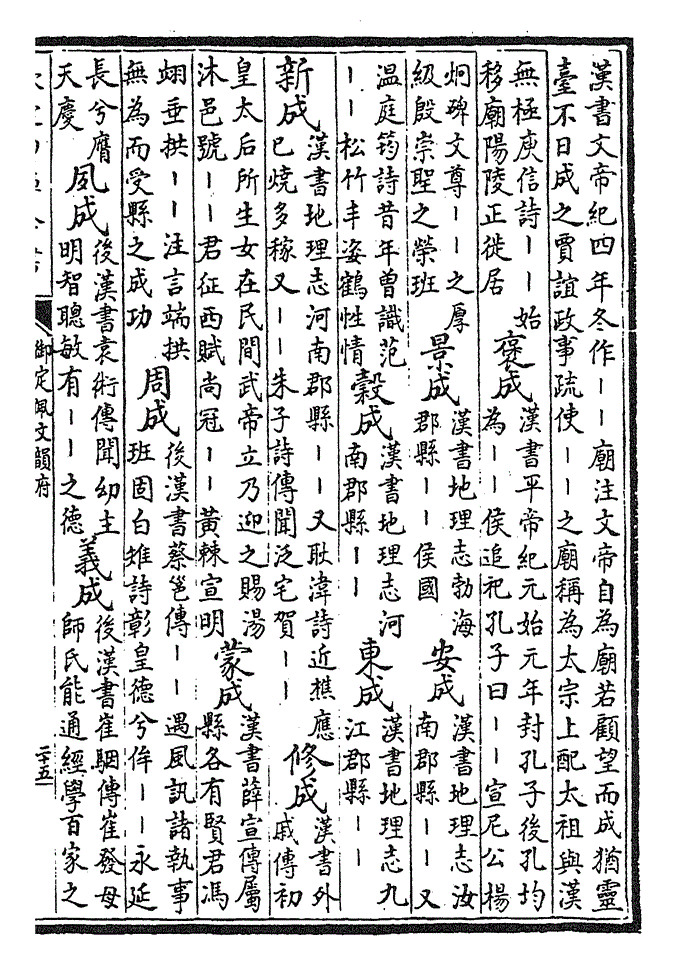 漢書文帝紀四年冬作丨丨廟注文帝自為廟若顧望而成猶靈
臺不日成之賈誼政事疏使丨丨之廟稱為太宗上配太祖與漢
無極庾信詩丨丨始
移廟陽陵正徙居
褒成
漢書平帝紀元始元年封孔子後孔均
為丨丨侯追祀孔子曰丨丨宣尼公楊
炯碑文尊丨丨之厚
級殷崇聖之榮班
景成
漢書地理志勃海
郡縣丨丨侯國
安成
漢書地理志汝
南郡縣丨丨又
温庭筠詩昔年曾識范
丨丨松竹丰姿鶴性情
穀成
漢書地理志河
南郡縣丨丨
東成
漢書地理志九
江郡縣丨丨
新成
漢書地理志河南郡縣丨丨又耿湋詩近樵應
已燒多稼又丨丨朱子詩傳聞泛宅賀丨丨
修成
漢書外
戚傳初
皇太后所生女在民間武帝立乃迎之賜湯
沐邑號丨丨君征西賦尚冠丨丨黄棘宣明
蒙成
漢書薛宣傳屬
縣各有賢君馮
翊垂拱丨丨注言端拱
無為而受縣之成功
周成
後漢書蔡邕傳丨丨遇風訊諸執事
班固白雉詩彰皇德兮侔丨丨永延
長兮膺
天慶
夙成
後漢書袁術傳聞幼主
明智聰敏有丨丨之德
義成
後漢書崔駰傳崔發母
師氏能通經學百家之
御定佩文韻府
二十五